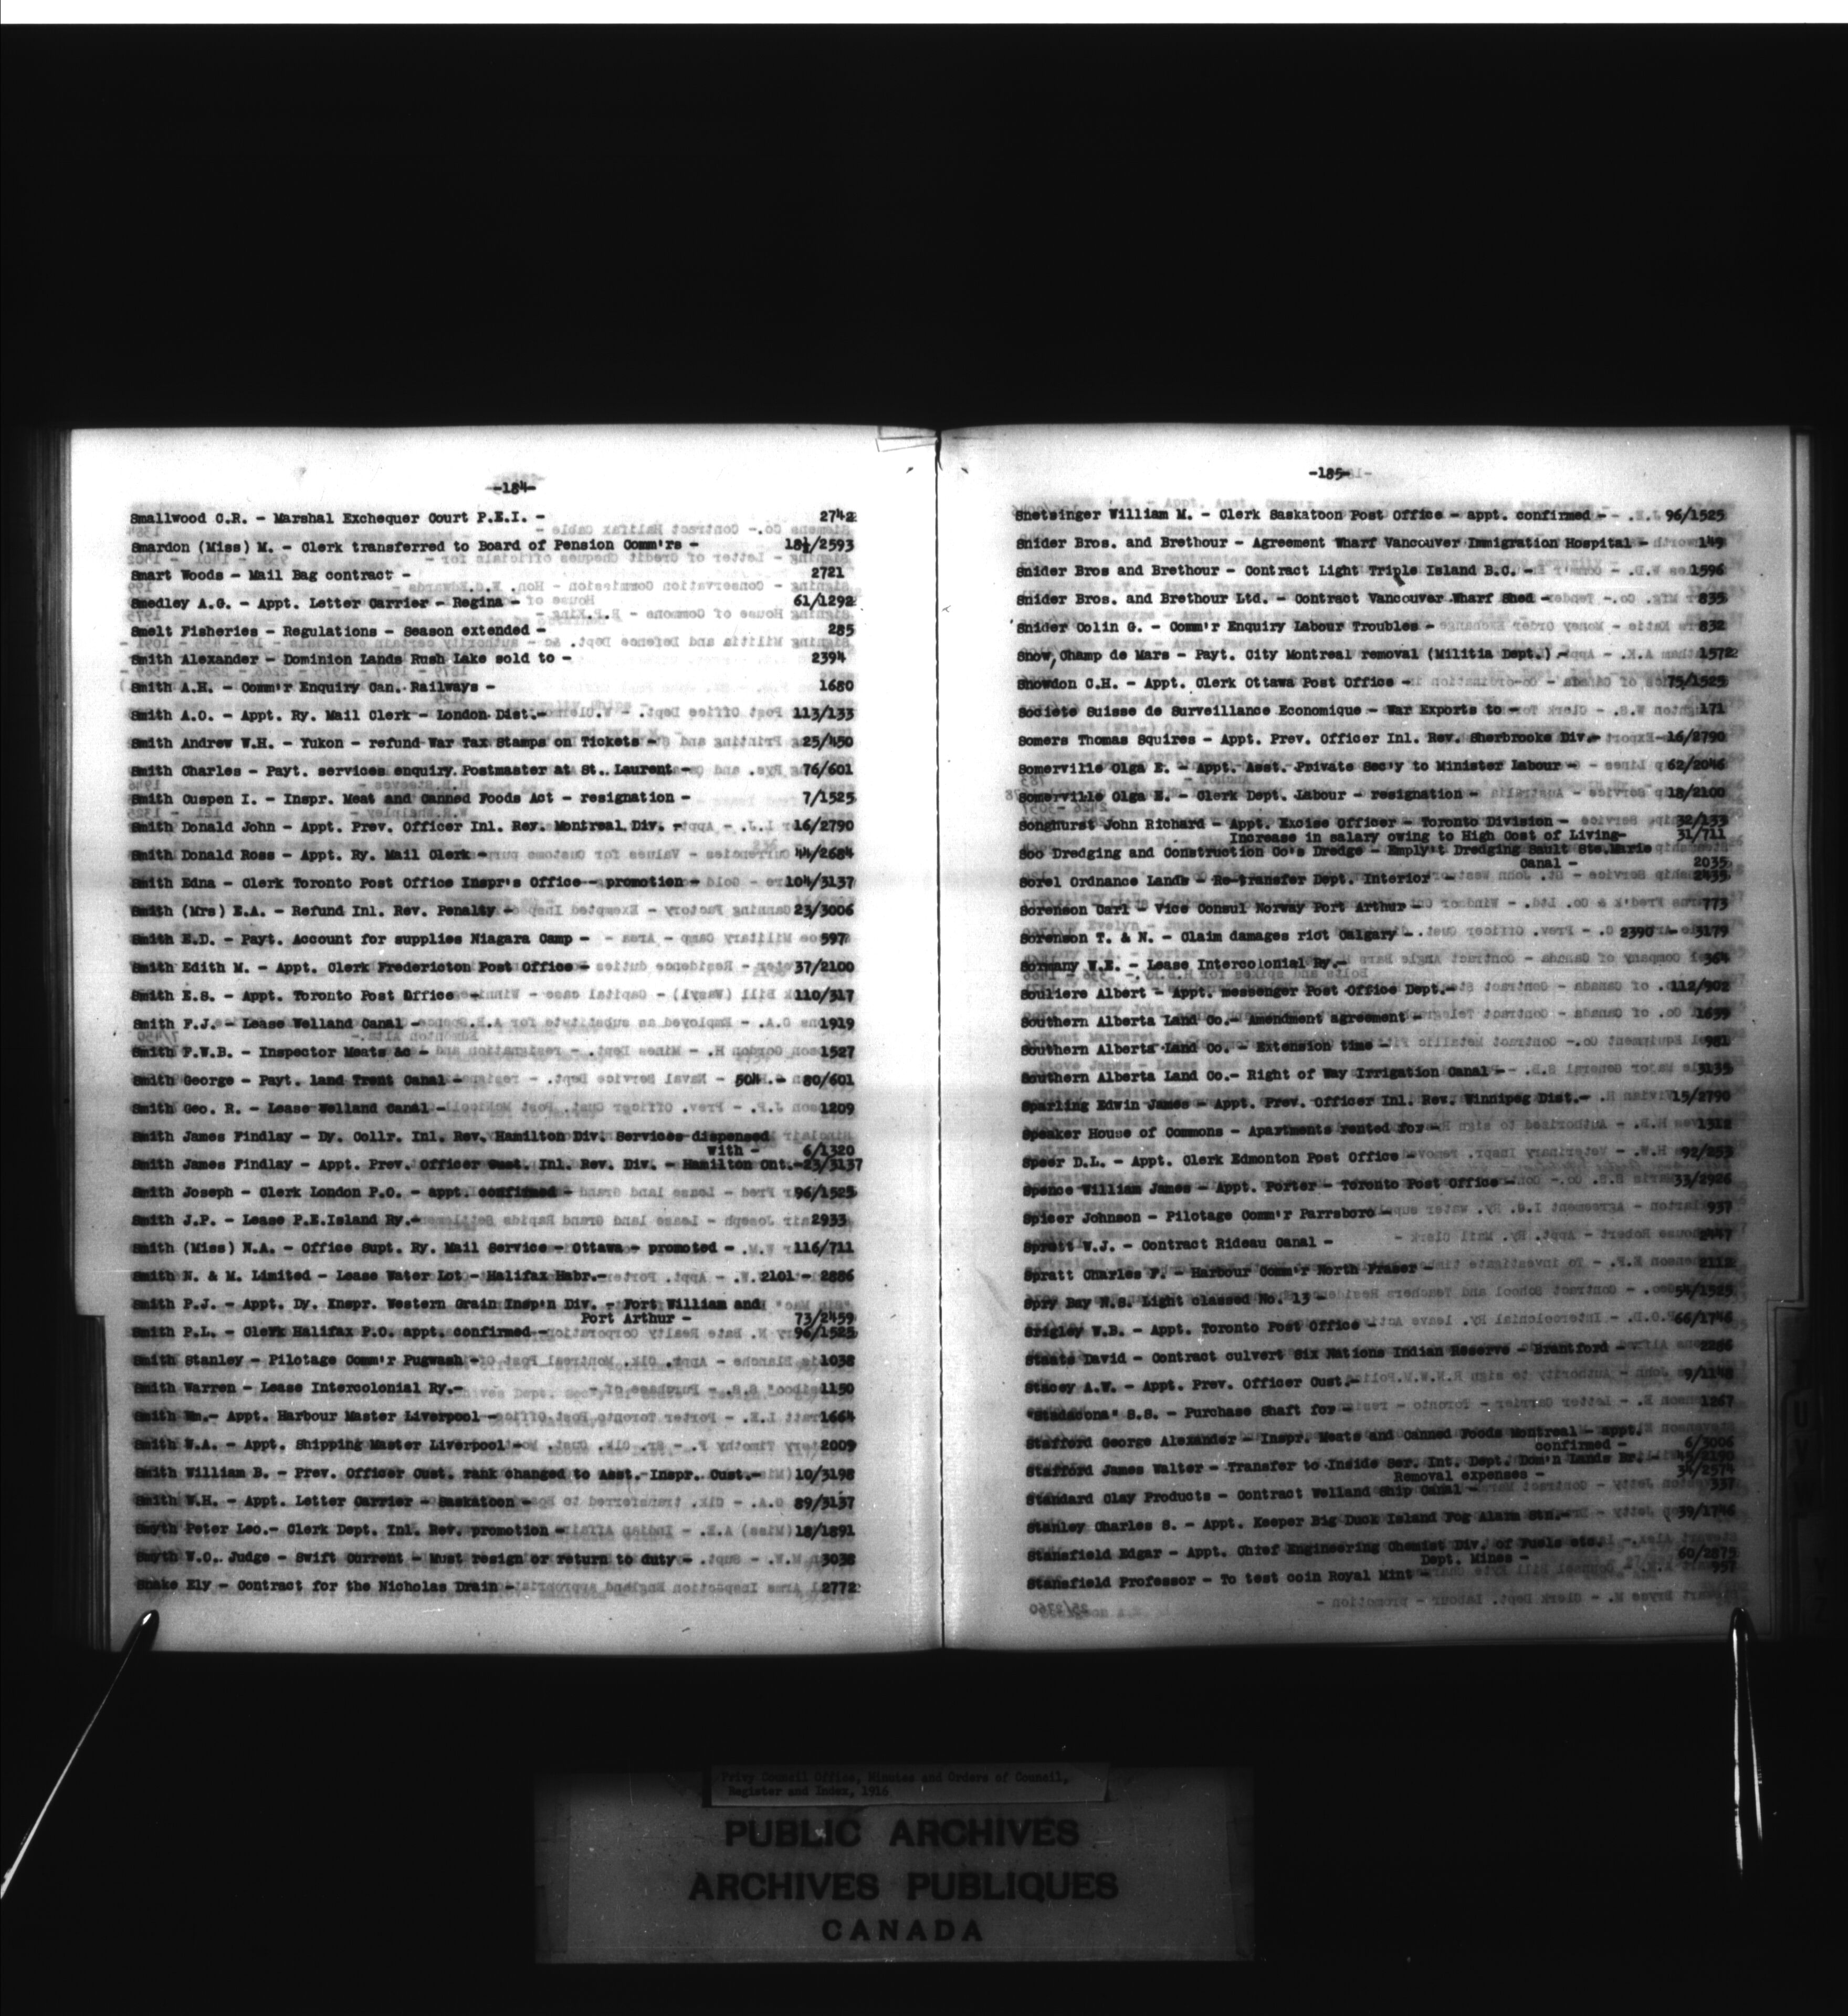 -184-
Smallwood C.R. - Marshal Exchequer Court P.E.I. - 2742
Smardon (Miss) M. - Clerk transferred to Board of Pension Comm'rs - 18½/2593
Smart Woods - Mail Bag contract - 2721
Smedley A.G. - Appt. Letter Carrier - Regina - 61/1292
Smelt Fisheries - Regulations - Season extended - 285
Smith Alexander - Dominion Lands Rush Lake sold to - 2394
Smith A.H. - Comm'r Enquiry Can. Railways - 1680
Smith A.O. - Appt. Ry. Mail Clerk - London Dist.- 113/133
Smith Andrew W.H. - Yukon - refund War Tax Stamps on Tickets - 25/450
Smith Charles - Payt. services enquiry Postmaster at St. Laurent - 76/601
Smith Cuspen I. - Inspr. Meat and Canned Foods Act - resignation - 7/1525
Smith Donald John - Appt. Prev. Officer Inl. Rev. Montreal Div. - 16/2790
Smith Donald Ross - Appt. Ry. Mail Clerk - 44/2684
Smith Edna - Clerk Toronto Post Office Inspr's Office - promotion - 104/3137
Smith (Mrs) E.A. - Refund Inl. Rev. Penalty - 23/3006
Smith E.D. - Payt. Account for supplies Niagara Camp - 597
Smith Edith M. - Appt. Clerk Fredericton Post Office - 37/2100
Smith E.S. - Appt. Toronto Post Office - 110/317
Smith F.J. - Lease Welland Canal - 1919
Smith F.W.B. - Inspector Meats &c - 1527
Smith George - Payt. land Trent Canal - 504 - 80/601
Smith Geo. R. - Lease Welland Canal - 1209
Smith James Findlay - Dy. Collr. Inl. Rev. Hamilton Div. Services dispensed
with - 6/1320
Smith James Findlay - Appt. Prev. Officer Cust. Inl. Rev. Div. - Hamilton Ont.-23/3137
Smith Joseph - Clerk London P.O. - appt. confirmed - 96/1525
Smith J.P. - Lease P.E.Island Ry.- 2933
Smith (Miss) N.A. - Office Supt. Ry. Mail Service - Ottawa - promoted - 116/711
Smith N. & M. Limited - Lease Water Lot - Halifax Habr.- 2101 - 2886
Smith P.J. - Appt. Dy. Inspr. Western Grain Insp'n Div. - Fort William and
Port Arthur - 73/2459
Smith P.L. - Clerk Halifax P.O. appt. confirmed - 96/1525
Smith Stanley - Pilotage Comm'r Pugwash - 1038
Smith Warren - Lease Intercolonial Ry.- 1150
Smith Wm.- Appt. Harbour Master Liverpool - 1664
Smith W.A. - Appt. Shipping Master Liverpool - 2009
Smith William B. - Prev. Officer Cust. rank changed to Asst. Inspr. Cust.- 10/3198
Smith W.H. - Appt. Letter Carrier - Saskatoon - 89/3137
Smyth Peter Leo.- Clerk Dept. Inl. Rev. promotion - 18/1891
Smyth W.O. Judge - Swift Current - Must resign or return to duty - 3038
Snake Ely - Contract for the Nicholas Drain - 2772
-185-
Snetsinger William M. - Clerk Saskatoon Post Office - appt. confirmed - 96/1525
Snider Bros. and Brethour - Agreement Wharf Vancouver Immigration Hospital - 149
Snider Bros and Brethour - Contract Light Triple Island B.C. - 1596
Snider Bros. and Brethour Ltd. - Contract Vancouver Wharf Shed - 835
Snider Colin G. - Comm'r Enquiry Labour Troubles - 832
Snow, Champ de Mars - Payt. City Montreal removal (Militia Dept.) - 1572
Snowdon C.H. - Appt. Clerk Ottawa Post Office - 75/1525
Societe Suisse de Surveillance Economique - War Exports to - 171
Somers Thomas Squires - Appt. Prev. Officer Inl. Rev. Sherbrooke Div.- 16/2790
Somerville Olga E. - Appt. Asst. Private Sec'y to Minister Labour - 62/2046
Somerville Olga E. - Clerk Dept. Labour - resignation - 18/2100
Songhurst John Richard - Appt. Excise Officer - Toronto Division - 32/133
Increase in salary owing to High Cost of Living- 31/711
Soo Dredging and Construction Co's Dredge - Emply't Dredging Sault Ste.Marie
Canal - 2035
Sorel Ordnance Lands - Re-transfer Dept. Interior - 2435
Sorenson Carl - Vice Consul Norway Port Arthur - 773
Sorenson T. & N. - Claim damages riot Calgary - 2390 - 3179
Sormany W.E. - Lease Intercolonial Ry.- 364
Souliere Albert - Appt. messenger Post Office Dept.- 112/902
Southern Alberta Land Co.- Amendment agreement - 1659
Southern Alberta Land Co. - Extension time - 981
Southern Alberta Land Co.- Right of Way Irrigation Canal - 3135
Sparling Edwin James - Appt. Prev. Officer Inl. Rev. Winnipeg Dist.- 15/2790
Speaker House of Commons - Apartments rented for - 1312
Speer D.L. - Appt. Clerk Edmonton Post Office - 92/253
Spence William James - Appt. Porter - Toronto Post Office - 33/2926
Spicer Johnson - Pilotage Comm'r Parrsboro - 937
Spratt W.J. - Contract Rideau Canal - 2447
Spratt Charles F. - Harbour Comm'r North Fraser - 2112
Spry Bay N.S. Light classed No. 13 - 54/1525
Srigley W.B. - Appt. Toronto Post Office - 66/1746
Staats David - Contract culvert Six Nations Indian Reserve - Brantford - 2286
Stacey A.W. - Appt. Prev. Officer Cust.- 9/1148
"Stadacona" S.S. - Purchase Shaft for - 1267
Stafford George Alexander - Inspr. Meats and Canned Foods Montreal - appt.
confirmed - 6/3006
Stafford James Walter - Transfer to Inside Ser. Int. Dept. Dom'n Lands Br.- 45/2190
Removal expenses - 34/2574
Standard Clay Products - Contract Welland Ship Canal - 337
Stanley Charles S. - Appt. Keeper Big Duck Island Fog Alarm Stn.- 39/1746
Stansfield Edgar - Appt. Chief Engineering Chemist Div. of Fuels etc.
Dept. Mines - 60/2875
Stansfield Professor - To test coin Royal Mint - 957
Privy Council Office, Minutes and Orders of Council,
Register and Index, 1916
PUBLIC ARCHIVES
ARCHIVES PUBLIQUES
CANADA